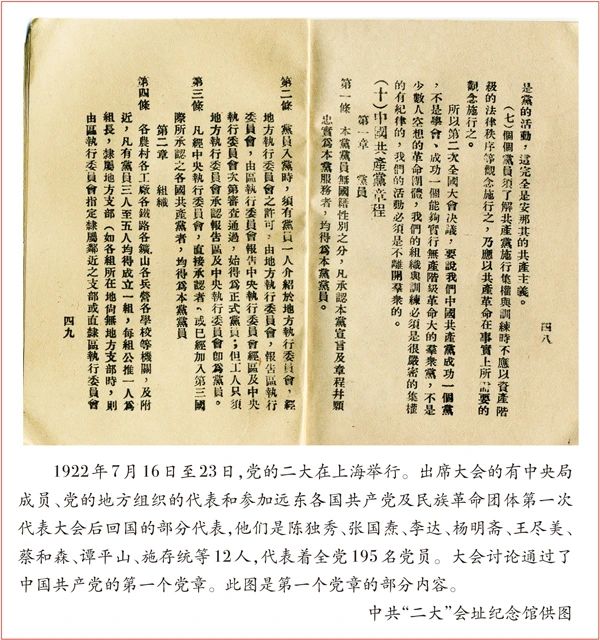 四八
是黨的活動，這完全是安那其的共產主義。
(七)個個黨員須了解共產黨施行集權與訓練時不應以資產階
級的法律秩序等觀念施行之，乃應以共產革命在事實上所需要的
觀念施行之。
所以第二次全國大會決議，要說我們中國共產黨成功一個黨
，不是學會、成功一個能夠實行無產階級革命大的羣衆黨，不是
少數人空想的革命團體，我們的組織與訓練必須是很嚴密的集權
的有紀律的，我們的活動必須是不離開羣衆的。
(十)中國共產黨章程
第一章 黨員
第一條 本黨黨員無國籍性別之分，凡承認本黨宣言及章程并願
忠實爲本黨服務者，均得爲本黨黨員。
第二條 黨員入黨時，須有黨員一人介紹於地方執行委員會，經
地方執行委員會之許可，由地方執行委員會，報告區執行
委員會，由區執行委員會報告中央執行委員會經區及中央
執行委員會次第審查通過，始得爲正式黨員；但工人只須
地方執行委員會承認報告區及中央執行委員會卽爲黨員。
第三條 凡經中央執行委員會，直接承認者、或已經加入第三國
際所承認之各國共產黨者，均得爲本黨黨員
第二章 組織
第四條 各農村各工廠各鐵路各鑛山各兵營各學校等機關，及附
近，凡有黨員三人至五人均得成立一組，每組公推一人爲
組長，隸屬地方支部（如各組所在地尙無地方支部時，則
由區執行委員會指定隸屬鄰近之支部或直隸區執行委員會
四九
1922年7月16日至23日,党的二大在上海举行。出席大会的有中央局
成员、党的地方组织的代表和参加远东各国共产党及民族革命团体第一次
代表大会后回国的部分代表,他们是陈独秀、张国焘、李达、杨明斋、王尽美、
蔡和森、谭平山、施存统等12人,代表着全党195名党员。大会讨论通过了
中国共产党的第一个党章。此图是第一个党章的部分内容。
中共“二大”会址纪念馆供图